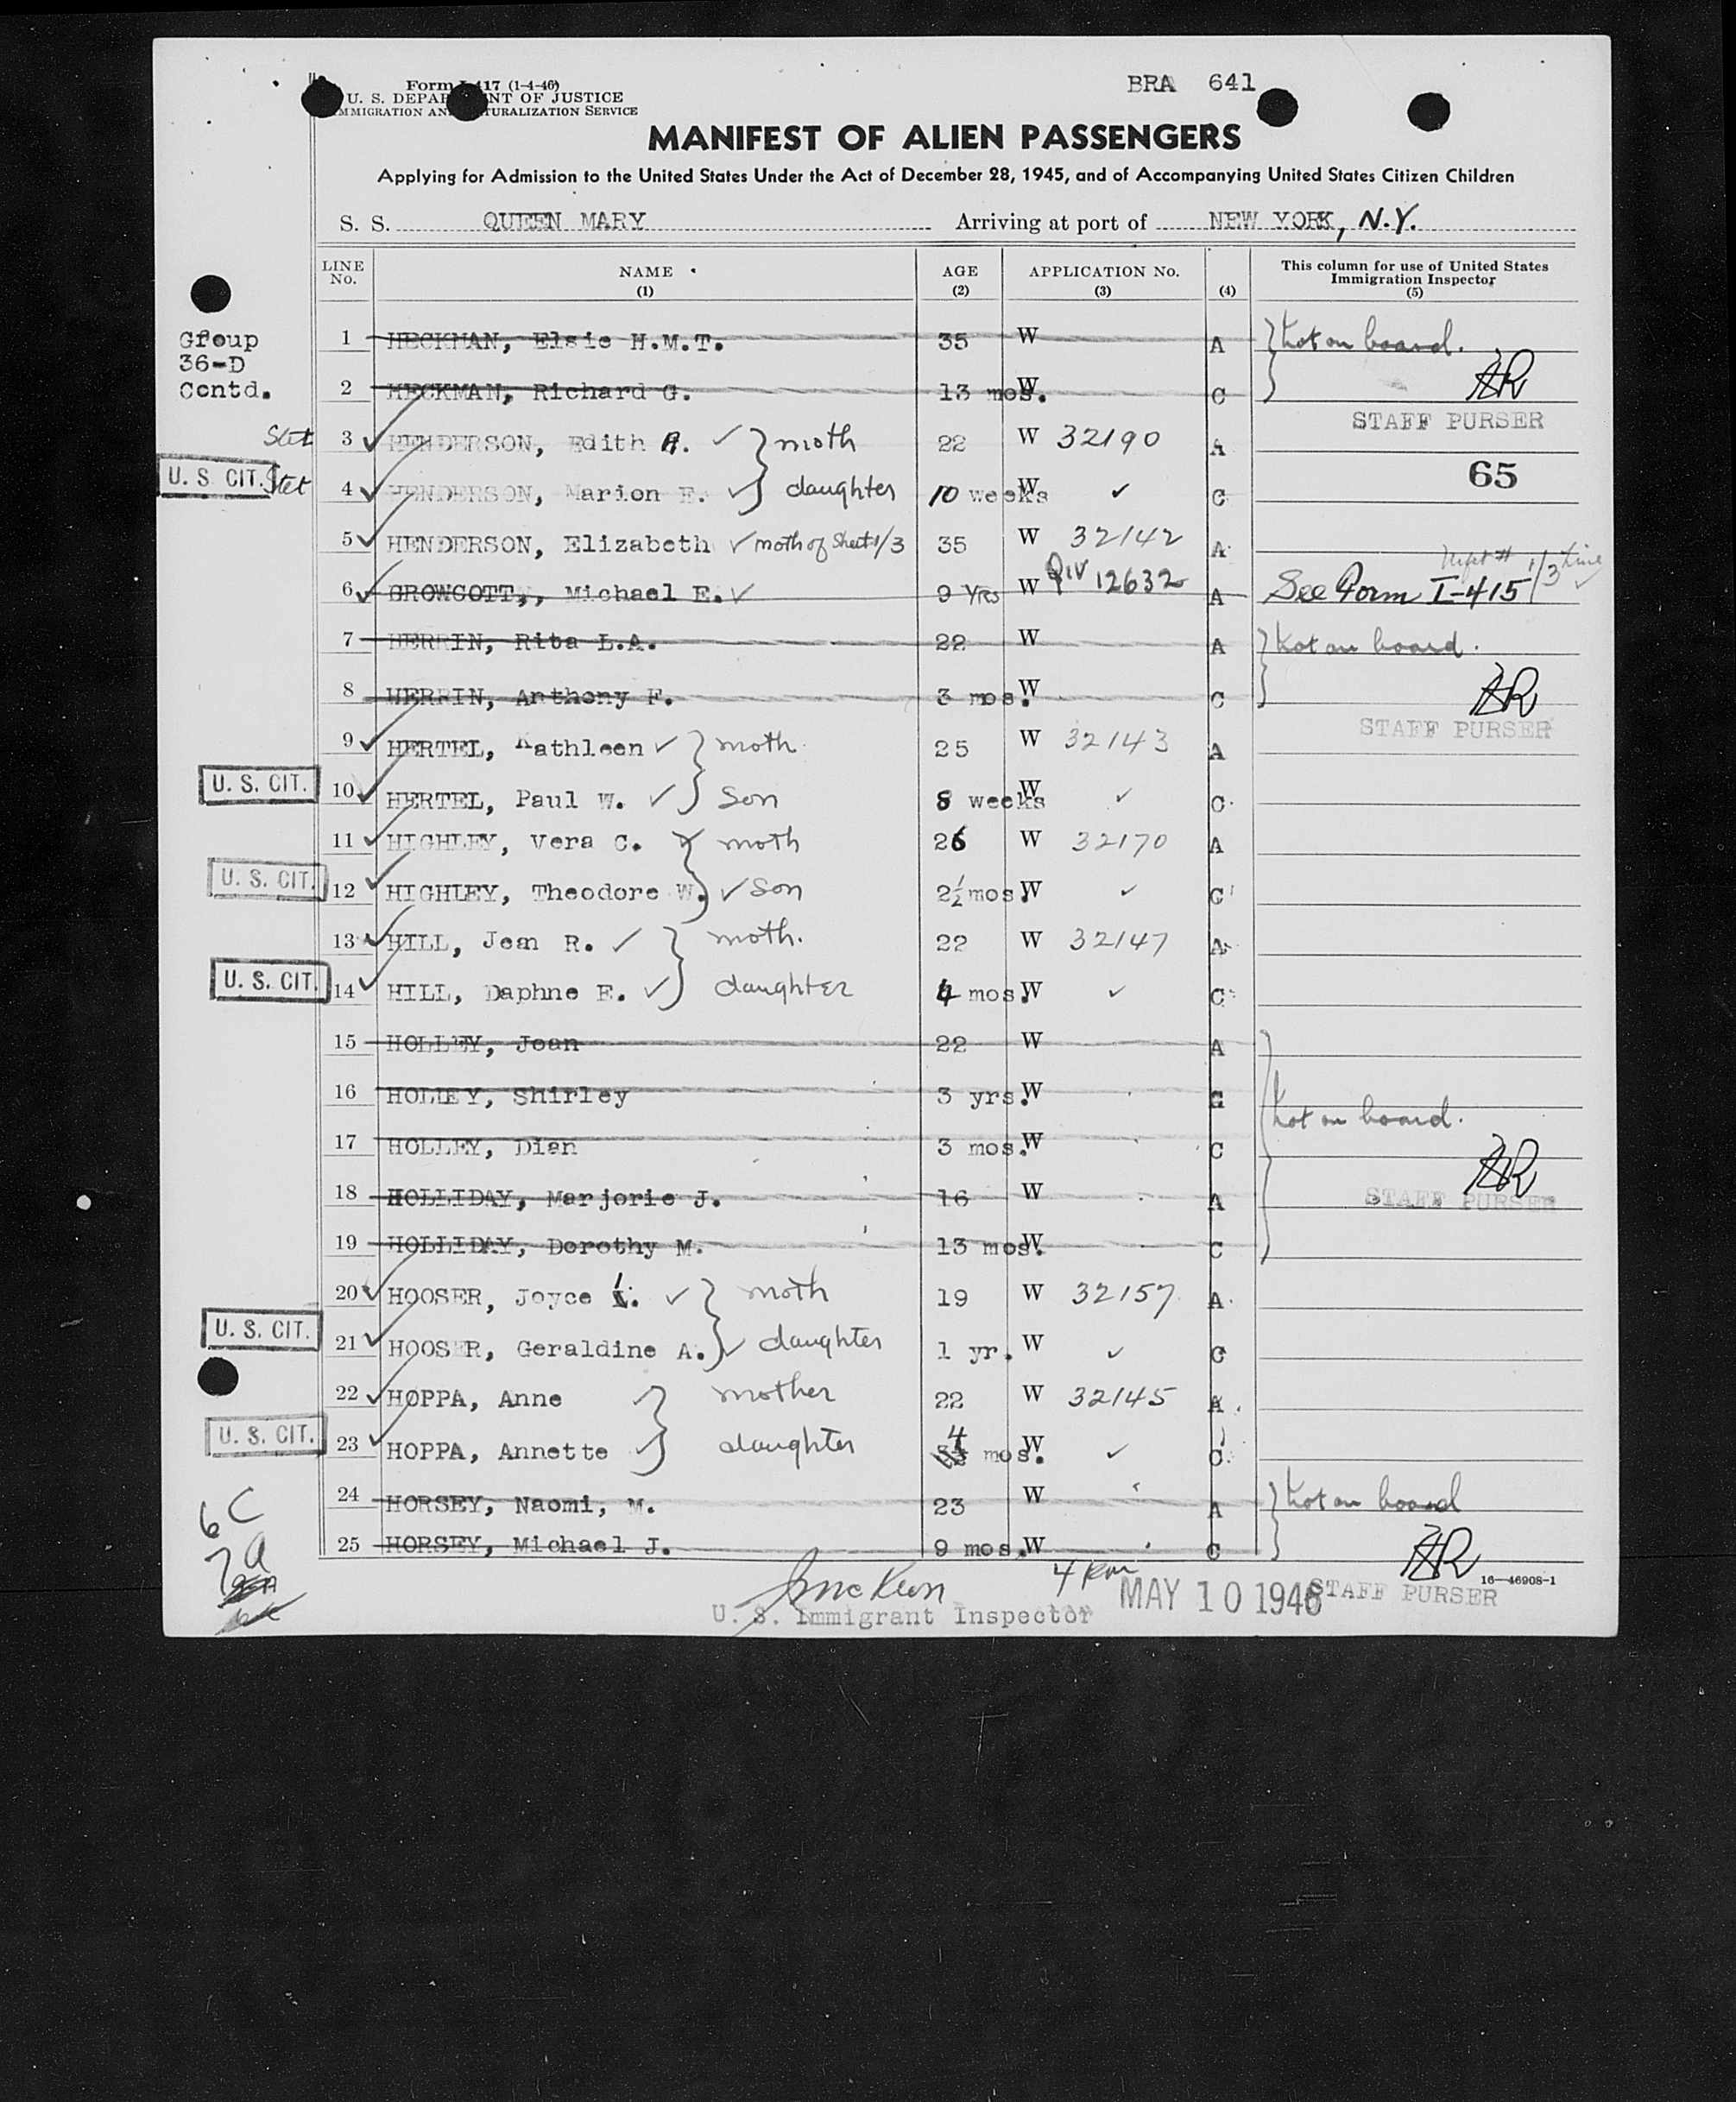 Form I-417 (1-4-46)
BRA 641
U. S. DEPARTMENT OF JUSTICE
IMMIGRATION AND NATURALIZATION SERVICE
MANIFEST OF ALIEN PASSENGERS
Applying for Admission to the United States Under the Act of December 28, 1945, and of Accompanying United States Citizen Children
S. S. QUEEN MARY Arriving at port of NEW YORK, N.Y.
LINE No. NAME (1) AGE (2) APPLICATION No. (3) (4) This column for use of United States Immigration Inspector (5)
Group 36-D Contd.
1 HECKMAN, Elsie H.M.T. 35 W A Not on board.
2 HECKMAN, Richard G. 13 mos. W C
STAFF PURSER
Stet 3 HENDERSON, Edith A. moth 22 W 32190 A
65
U. S. CIT. Stet 4 HENDERSON, Marion E. daughter 10 weeks W C
5 HENDERSON, Elizabeth moth of Sheet 1/3 35 W 32142 A
6 GROWCOTT, Michael E. 9 Yrs W QIV 12632 A See Form I-415 1/3 line
7 HERRIN, Rita L.A. 22 W A Not on board.
8 HERRIN, Anthony F. 3 mos. W C
STAFF PURSER
9 HERTEL, Kathleen moth 25 W 32143 A
U. S. CIT. 10 HERTEL, Paul W. Son 8 weeks W C
11 HIGHLEY, Vera C. moth 26 W 32170 A
U. S. CIT. 12 HIGHLEY, Theodore W. Son 2½ mos. W C
13 HILL, Jean R. moth. 22 W 32147 A
U. S. CIT. 14 HILL, Daphne E. daughter 4 mos. W C
15 HOLLEY, Joan 22 W A
16 HOLLEY, Shirley 3 yrs. W C
Not on board.
17 HOLLEY, Dian 3 mos. W C
18 HOLLIDAY, Marjorie J. 16 W A
STAFF PURSER
19 HOLLIDAY, Dorothy M. 13 mos. W C
20 HOOSER, Joyce I. moth 19 W 32157 A
U. S. CIT. 21 HOOSER, Geraldine A. daughter 1 yr. W C
22 HOPPA, Anne mother 22 W 32145 A
U. S. CIT. 23 HOPPA, Annette daughter 4 mos. W C
24 HORSEY, Naomi, M. 23 W A Not on board
25 HORSEY, Michael J. 9 mos. W C
6C
7a
16—46908-1
MAY 10 1946
STAFF PURSER
U. S. Immigrant Inspector